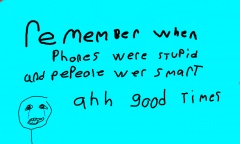 remember when
Phones were stupid
and pepeole wer smart
ahh good times